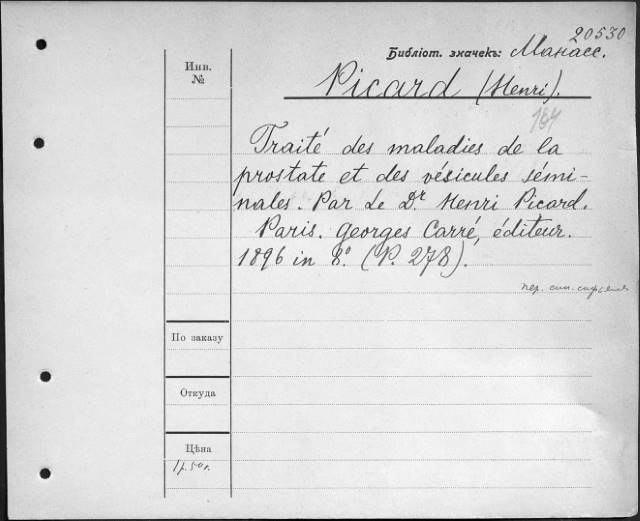 20530
Библіот. значекъ: Манасс.
Инв.
№
Picard (Henri).
184
Traité des maladies de la
prostate et des vésicules sémi-
nales. Par Le Dr Henri Picard.
Paris. Georges Carré, éditeur.
1896 in 8º. (P. 278).
пер.
По заказу
Откуда
Цѣна